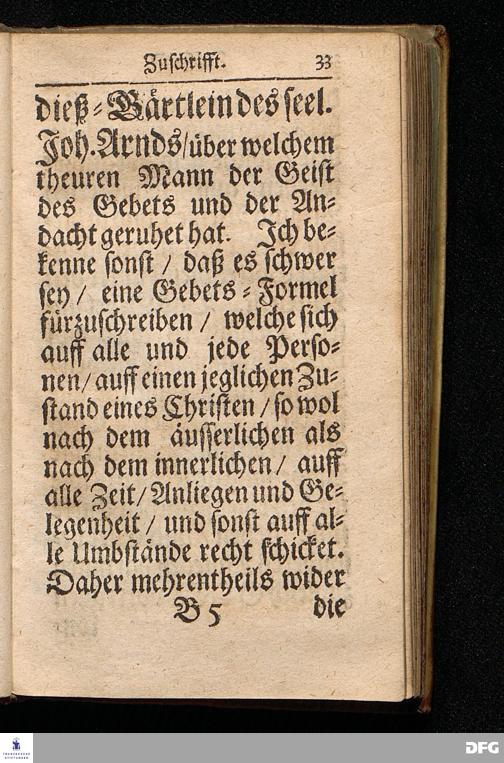 Zuschrifft. 33
dieß-Gärtlein des seel.
Joh. Arnds/ über welchem
theuren Mann der Geist
des Gebets und der An-
dacht geruhet hat. Ich be-
kenne sonst / daß es schwer
sey / eine Gebets-Formel
fürzuschreiben / welche sich
auff alle und jede Perso-
nen/ auff einen jeglichen Zu-
stand eines Christen / so wol
nach dem äusserlichen als
nach dem innerlichen / auff
alle Zeit/ Anliegen und Ge-
legenheit / und sonst auff al-
le Umbstände recht schicket.
Daher mehrentheils wider
B 5 die
FRANCKESCHE STIFTUNGEN
DFG